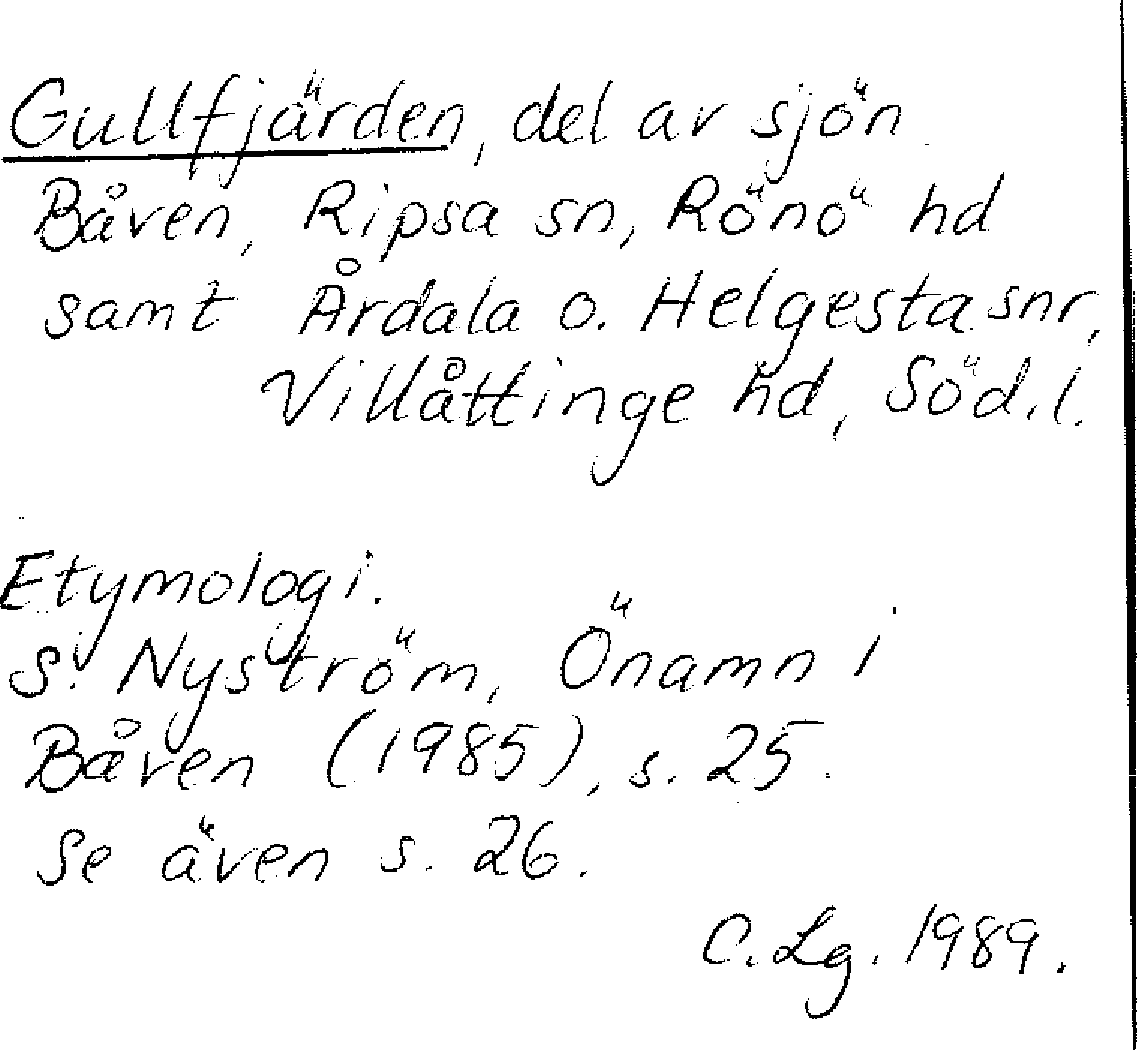 Gullfjärden, del av sjön
Båven, Ripsa sn, Rönö hd
samt Årdala o. Helgesta snr,
Villåttinge hd, Söd.l.
Etymologi.
S. Nyström, Önamn i
Båven (1985), s. 25.
Se även s. 26.
C. Lg. 1989.